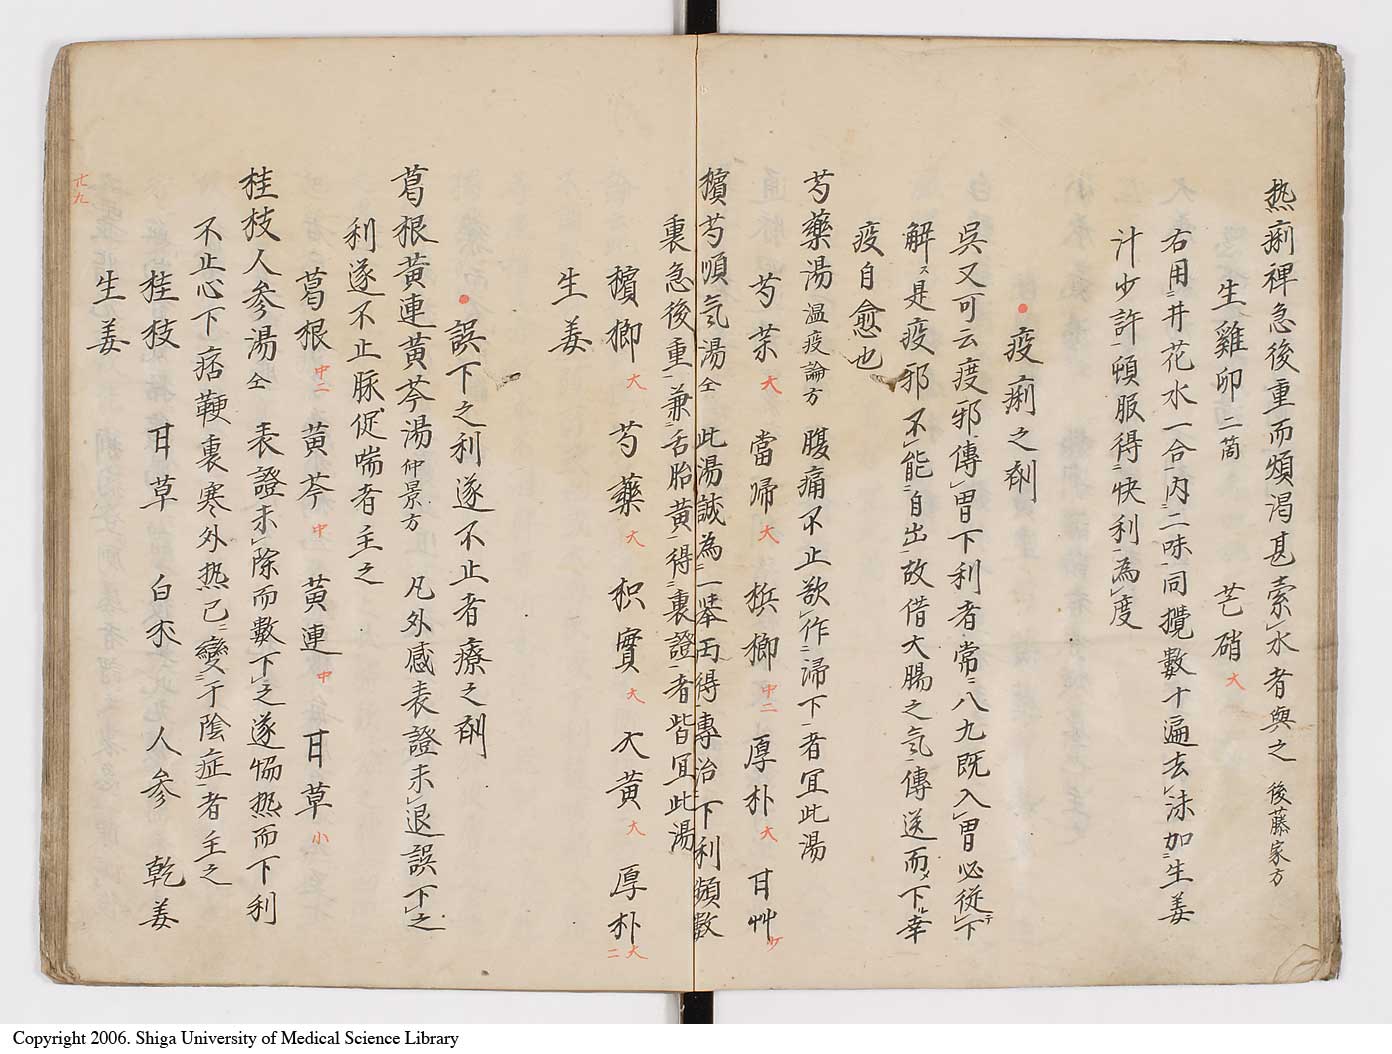 热痢裨急後重而煩渇甚索水者與之 後藤家方
生雞卵二箇 芒硝大
右用井花水一合内二味同攪数十遍去沫加生姜
汁少許頓服得快利為度
疫痢之剤
呉又可云疫邪傳胃下利者常八九既入胃必従下
解ス是疫邪不能自出故借大腸之氣傳送而下幸
疫自愈也
芍藥湯 温疫論方 腹痛不止欲作滞下者冝此湯
芍薬大 當帰大 梹榔中二 厚朴大 甘艸少
檳芍順氣湯仝 此湯誠為一挙両得専治下利頻数
裏急後重兼舌胎黄得裏證者皆冝此湯
檳榔大 芍藥大 枳實大 大黄大 厚朴大二
生姜
誤下之利遂不止者療之剤
葛根黄連黄芩湯 仲景方 凡外感表證未退誤下之
利遂不止脉促喘者主之
葛根中二 黄芩中 黄連中 甘草小
桂枝人参湯仝 表證未除而数下之遂恊热而下利
不止心下痞鞕裏寒外热已變于陰症者主之
桂枝 甘草 白朮 人参 乾姜
生姜
廿九
Copyright 2006. Shiga University of Medical Science Library